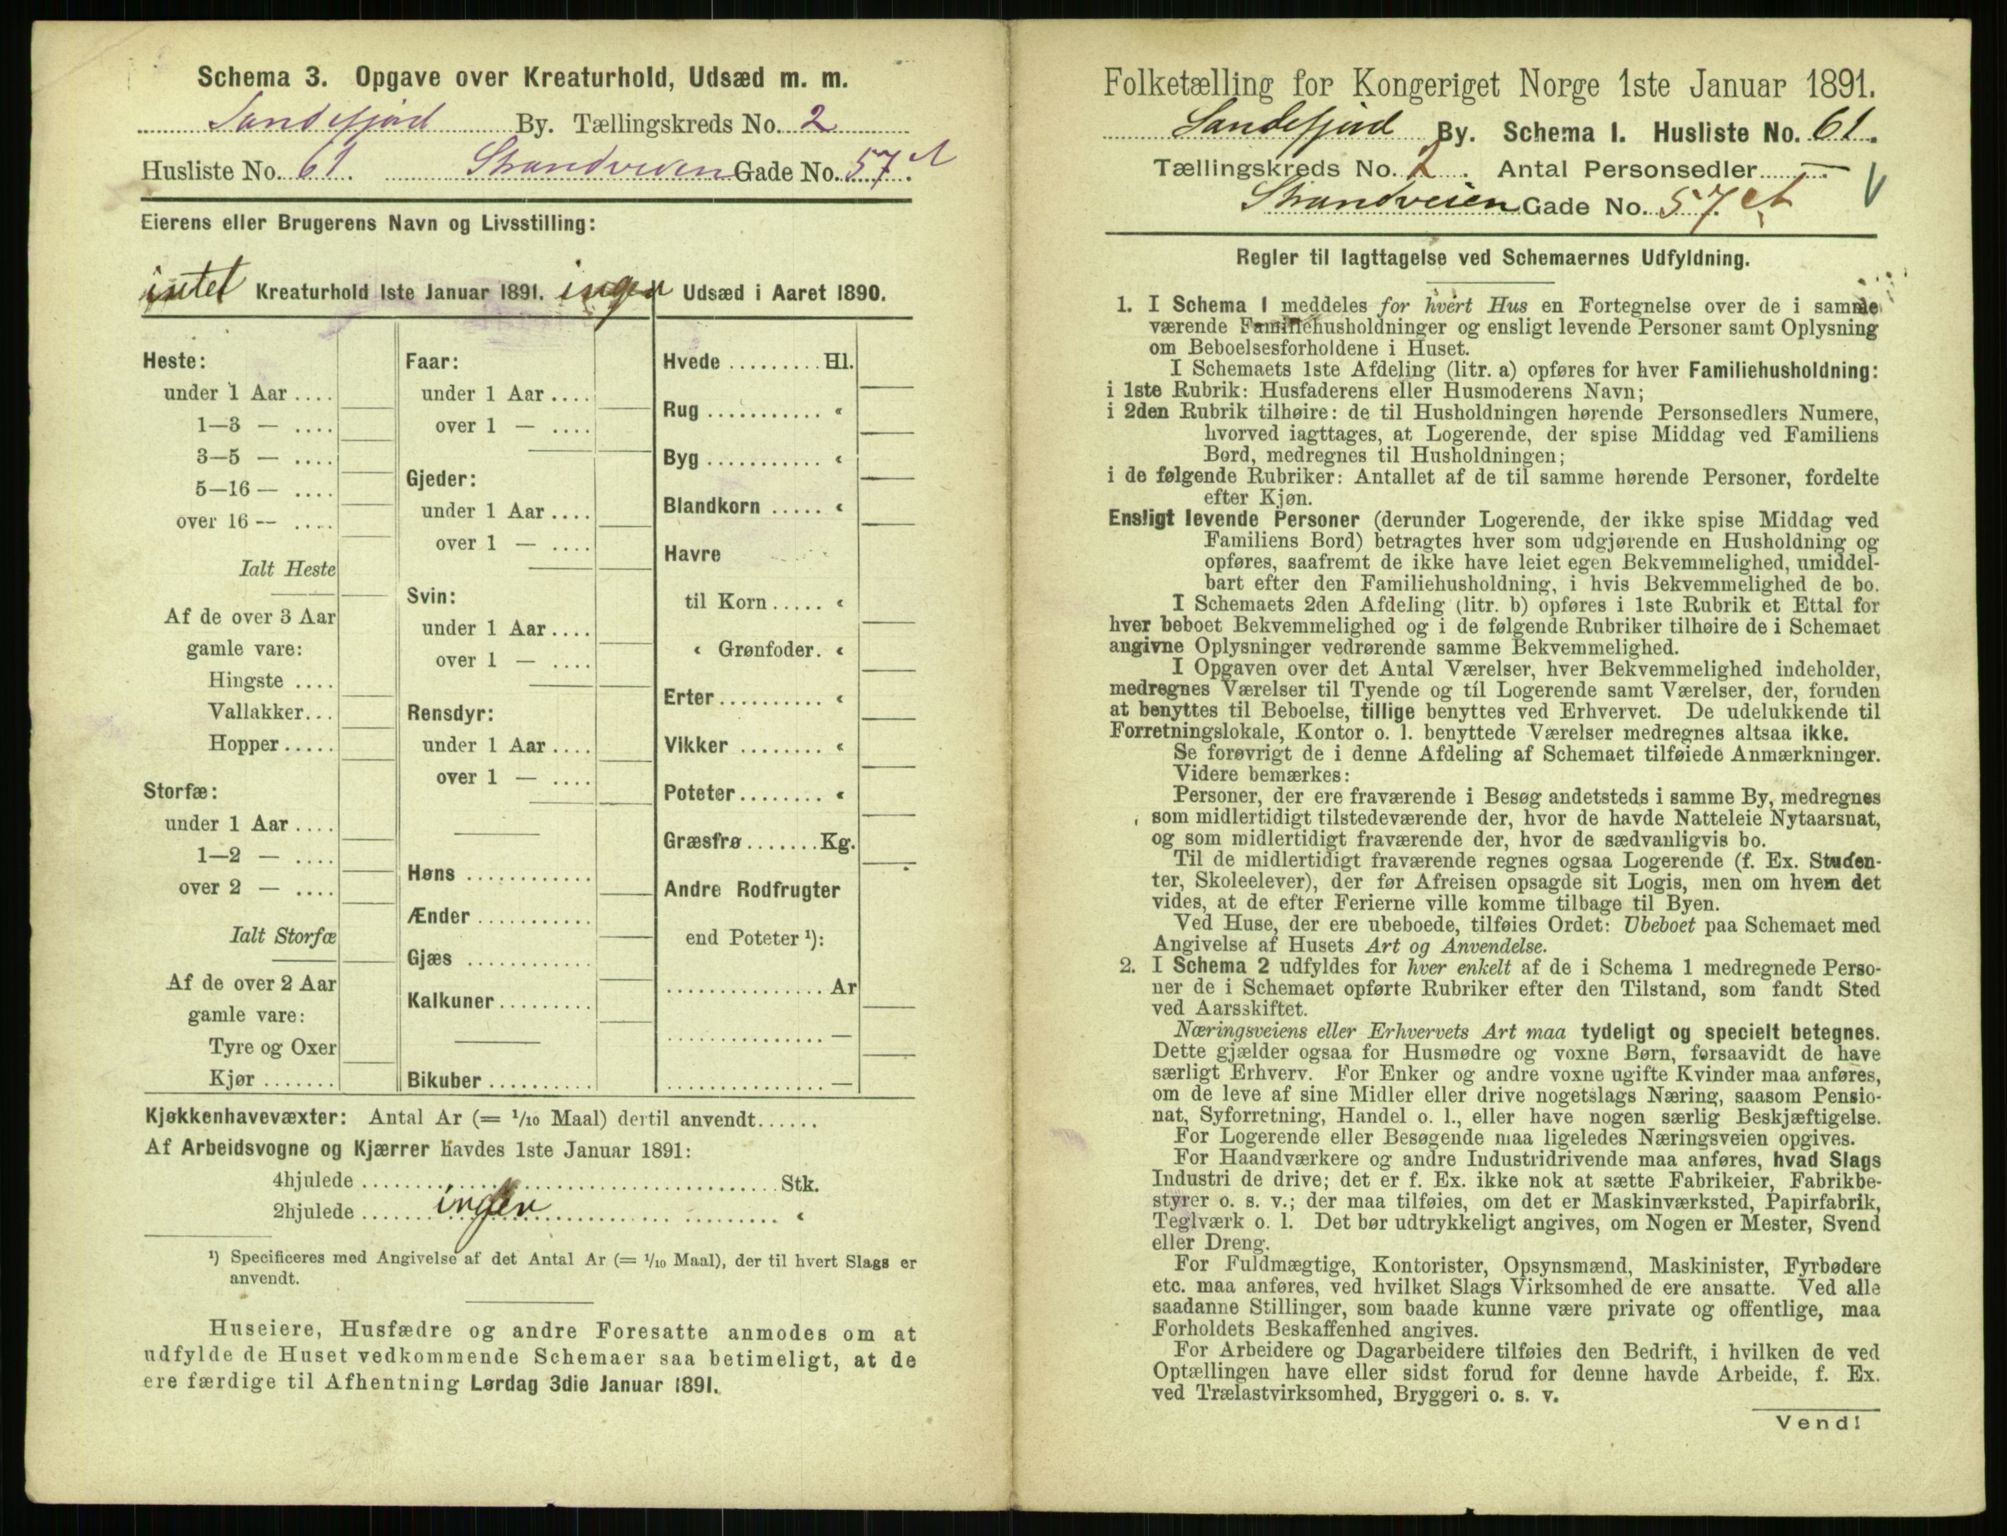 Schema 3. Opgave over Kreaturhold, Udsæd m. m.
Sandefjord By. Tællingskreds No. 2
Husliste No. 61. Strandveien Gade No. 57 A
Eierens eller Brugerens Navn og Livsstilling:
intet Kreaturhold 1ste Januar 1891. ingen Udsæd i Aaret 1890.
Heste:
under 1 Aar ....
1—3 — ....
3—5 — ....
5—16 — ....
over 16 — ....
Ialt Heste
Af de over 3 Aar
gamle vare:
Hingste ....
Vallakker...
Hopper.....
Storfæ:
under 1 Aar ....
1—2 — ....
over 2 — ....
Ialt Storfæ
Af de over 2 Aar
gamle vare:
Tyre og Oxer
Kjør .......
Faar:
under 1 Aar ....
over 1 — ....
Gjeder:
under 1 Aar ....
over 1 — ....
Svin:
under 1 Aar ....
over 1 — ....
Rensdyr:
under 1 Aar ....
over 1 — ....
Høns ............
Ænder ...........
Gjæs ............
Kalkuner.........
Bikuber ..........
Hvede ......... Hl.
Rug ........... «
Byg ........... «
Blandkorn ..... «
Havre
til Korn ..... «
« Grønfoder. «
Erter.......... «
Vikker ........ «
Poteter........ «
Græsfrø.......Kg.
Andre Rodfrugter
end Poteter ¹):
............... Ar
............... —
............... —
Kjøkkenhavevæxter: Antal Ar (= 1/10 Maal) dertil anvendt......
Af Arbeidsvogne og Kjærrer havdes 1ste Januar 1891:
4hjulede ........................................ Stk.
2hjulede ...... ingen ........................ «
¹) Specificeres med Angivelse af det Antal Ar (= 1/10 Maal), der til hvert Slags er
anvendt.
Huseiere, Husfædre og andre Foresatte anmodes om at
udfylde de Huset vedkommende Schemaer saa betimeligt, at de
ere færdige til Afhentning Lørdag 3die Januar 1891.
Folketælling for Kongeriget Norge 1ste Januar 1891.
Sandefjord By. Schema 1. Husliste No. 61.
Tællingskreds No. 2. Antal Personsedler —
Strandveien Gade No. 57. A
Regler til Iagttagelse ved Schemaernes Udfyldning.
1. I Schema 1 meddeles for hvert Hus en Fortegnelse over de i samme
værende Familiehusholdninger og ensligt levende Personer samt Oplysning
om Beboelsesforholdene i Huset.
I Schemaets 1ste Afdeling (litr. a) opføres for hver Familiehusholdning:
i 1ste Rubrik: Husfaderens eller Husmoderens Navn;
i 2den Rubrik tilhøire: de til Husholdningen hørende Personsedlers Numere,
hvorved iagttages, at Logerende, der spise Middag ved Familiens
Bord, medregnes til Husholdningen;
i de følgende Rubriker: Antallet af de til samme hørende Personer, fordelte
efter Kjøn.
Ensligt levende Personer (derunder Logerende, der ikke spise Middag ved
Familiens Bord) betragtes hver som udgjørende en Husholdning og
opføres, saafremt de ikke have leiet egen Bekvemmelighed, umiddel-
bart efter den Familiehusholdning, i hvis Bekvemmelighed de bo.
I Schemaets 2den Afdeling (litr. b) opføres i 1ste Rubrik et Ettal for
hver beboet Bekvemmelighed og i de følgende Rubriker tilhøire de i Schemaet
angivne Oplysninger vedrørende samme Bekvemmelighed.
I Opgaven over det Antal Værelser, hver Bekvemmelighed indeholder,
medregnes Værelser til Tyende og til Logerende samt Værelser, der, foruden
at benyttes til Beboelse, tillige benyttes ved Erhvervet. De udelukkende til
Forretningslokale, Kontor o. l. benyttede Værelser medregnes altsaa ikke.
Se forøvrigt de i denne Afdeling af Schemaet tilføiede Anmærkninger.
Videre bemærkes:
Personer, der ere fraværende i Besøg andetsteds i samme By, medregnes
som midlertidigt tilstedeværende der, hvor de havde Natteleie Nytaarsnat,
og som midlertidigt fraværende der, hvor de sædvanligvis bo.
Til de midlertidigt fraværende regnes ogsaa Logerende (f. Ex. Studen-
ter, Skoleelever), der før Afreisen opsagde sit Logis, men om hvem det
vides, at de efter Ferierne ville komme tilbage til Byen.
Ved Huse, der ere ubeboede, tilføies Ordet: Ubeboet paa Schemaet med
Angivelse af Husets Art og Anvendelse.
2. I Schema 2 udfyldes for hver enkelt af de i Schema 1 medregnede Perso-
ner de i Schemaet opførte Rubriker efter den Tilstand, som fandt Sted
ved Aarsskiftet.
Næringsveiens eller Erhvervets Art maa tydeligt og specielt betegnes.
Dette gjælder ogsaa for Husmødre og voxne Børn, forsaavidt de have
særligt Erhverv. For Enker og andre voxne ugifte Kvinder maa anføres,
om de leve af sine Midler eller drive nogetslags Næring, saasom Pensio-
nat, Syforretning, Handel o. l., eller have nogen særlig Beskjæftigelse.
For Logerende eller Besøgende maa ligeledes Næringsveien opgives.
For Haandværkere og andre Industridrivende maa anføres, hvad Slags
Industri de drive; det er f. Ex. ikke nok at sætte Fabrikeier, Fabrikbe-
styrer o. s. v.; der maa tilføies, om det er Maskinværksted, Papirfabrik,
Teglværk o. l. Det bør udtrykkeligt angives, om Nogen er Mester, Svend
eller Dreng.
For Fuldmægtige, Kontorister, Opsynsmænd, Maskinister, Fyrbødere
etc. maa anføres, ved hvilket Slags Virksomhed de ere ansatte. Ved alle
saadanne Stillinger, som baade kunne være private og offentlige, maa
Forholdets Beskaffenhed angives.
For Arbeidere og Dagarbeidere tilføies den Bedrift, i hvilken de ved
Optællingen have eller sidst forud for denne havde Arbeide, f. Ex.
ved Trælastvirksomhed, Bryggeri o. s. v.
Vend!